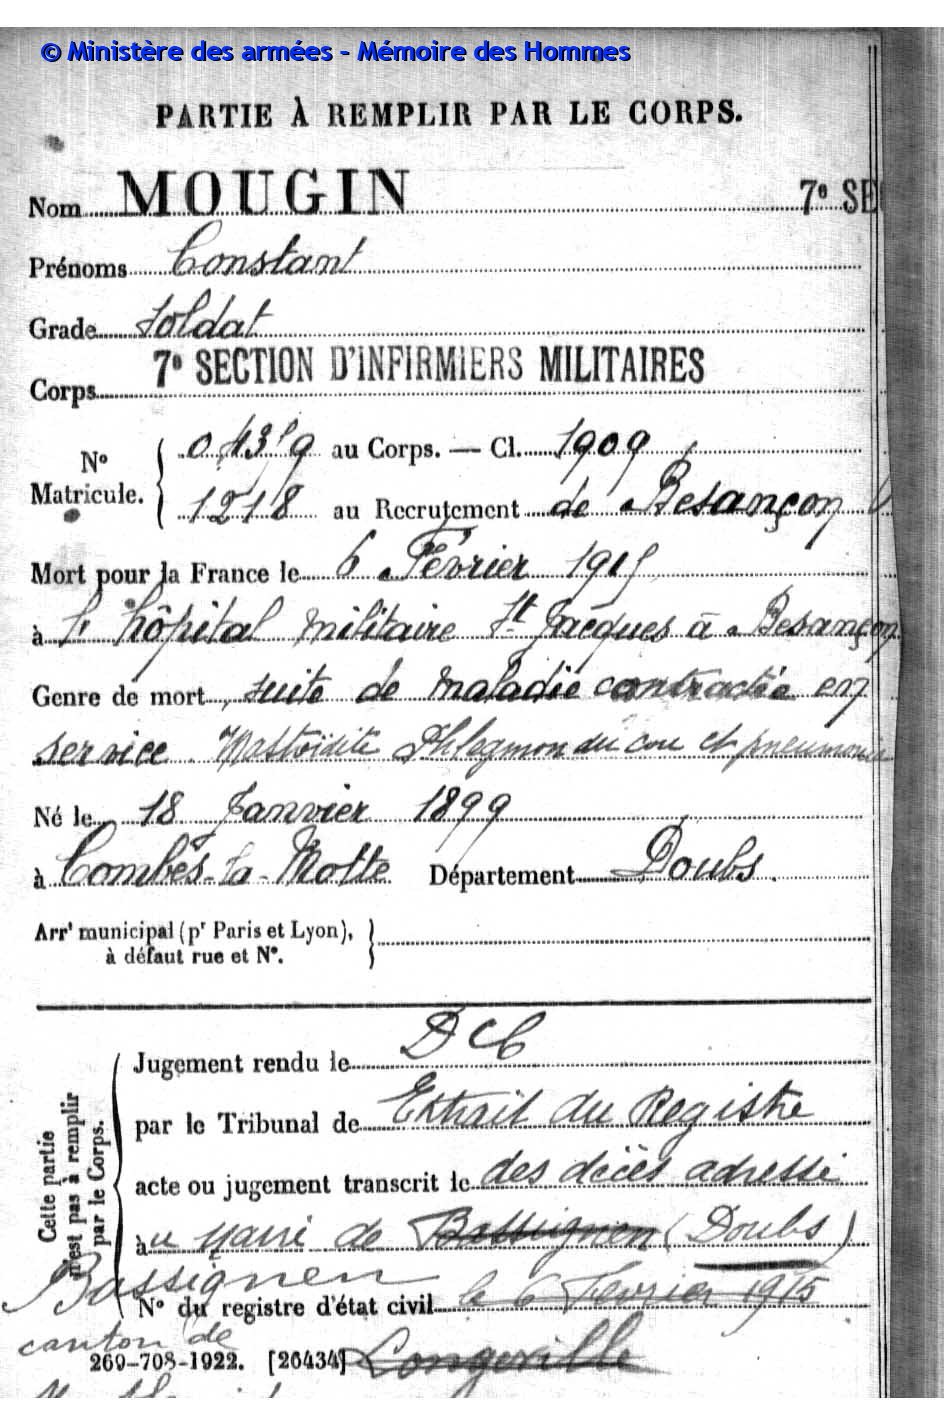 © Ministère des armées - Mémoire des Hommes
PARTIE À REMPLIR PAR LE CORPS.
Nom MOUGIN 7e SE
Prénoms Constant
Grade Soldat
Corps 7e SECTION D'INFIRMIERS MILITAIRES
No Matricule. 0.4319 au Corps. — Cl. 1909
1218 au Recrutement de Besançon
Mort pour la France le 6 Février 1915
à l'hôpital militaire St Jacques à Besançon
Genre de mort suite de maladie contractée en
service. Mastoïdite Phlegmon du cou et pneumonie
Né le 18 Janvier 1899
à Combes-la-Motte Département Doubs.
Arrt municipal (pr Paris et Lyon),
à défaut rue et No.
Cette partie n'est pas à remplir par le Corps.
Jugement rendu le DC6
par le Tribunal de Extrait du Registre
acte ou jugement transcrit le des décès adressé
à au Maire de Bassignen (Doubs)
Bassignen
No du registre d'état civil le 6 Février 1915
canton de
269-708-1922. [26434] Longeville